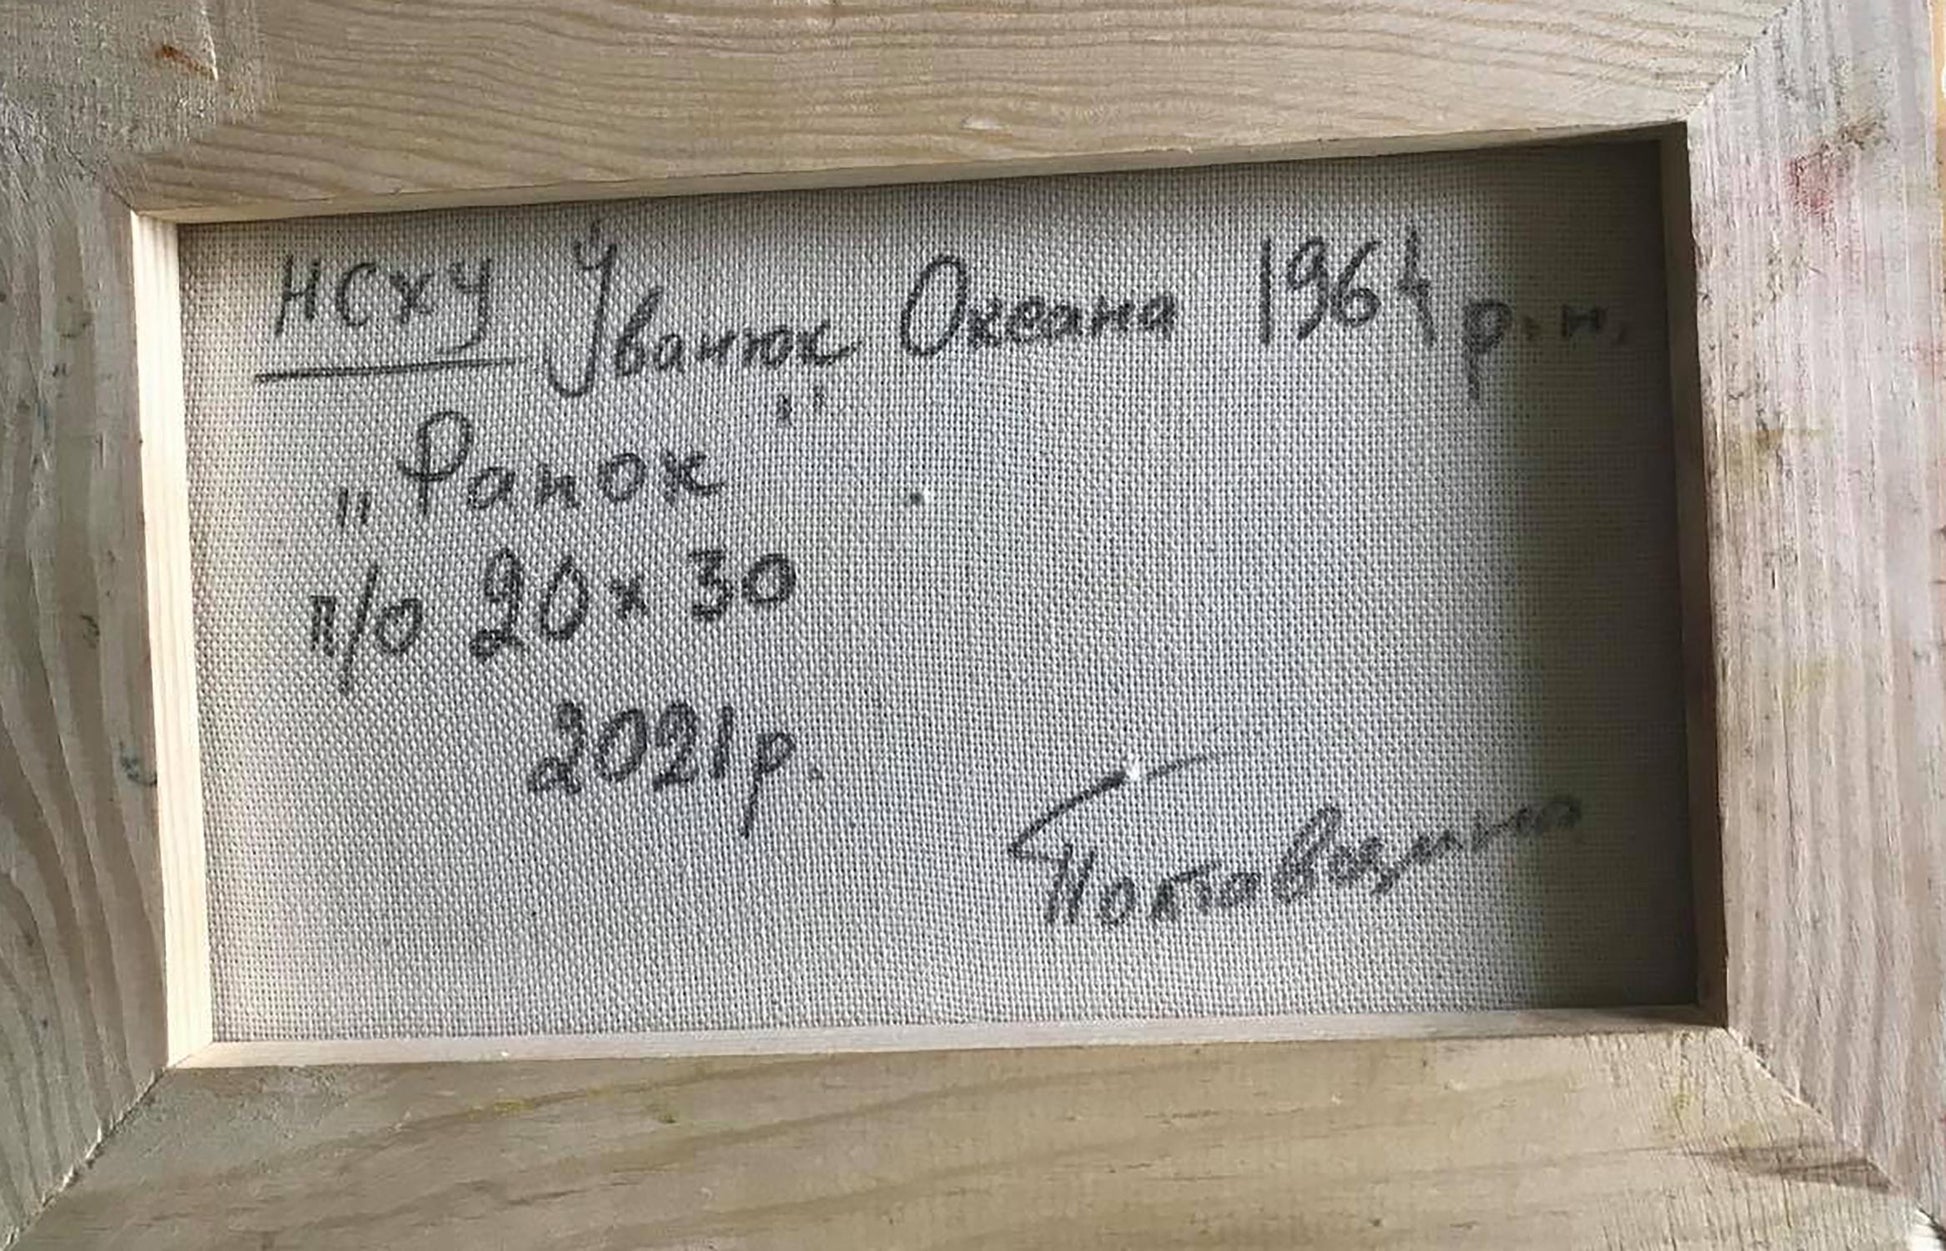 НСХУ Іванюк Океана 1964 р.н.
„Ранок"
п/о 20х30
2021р.
Полтавщина